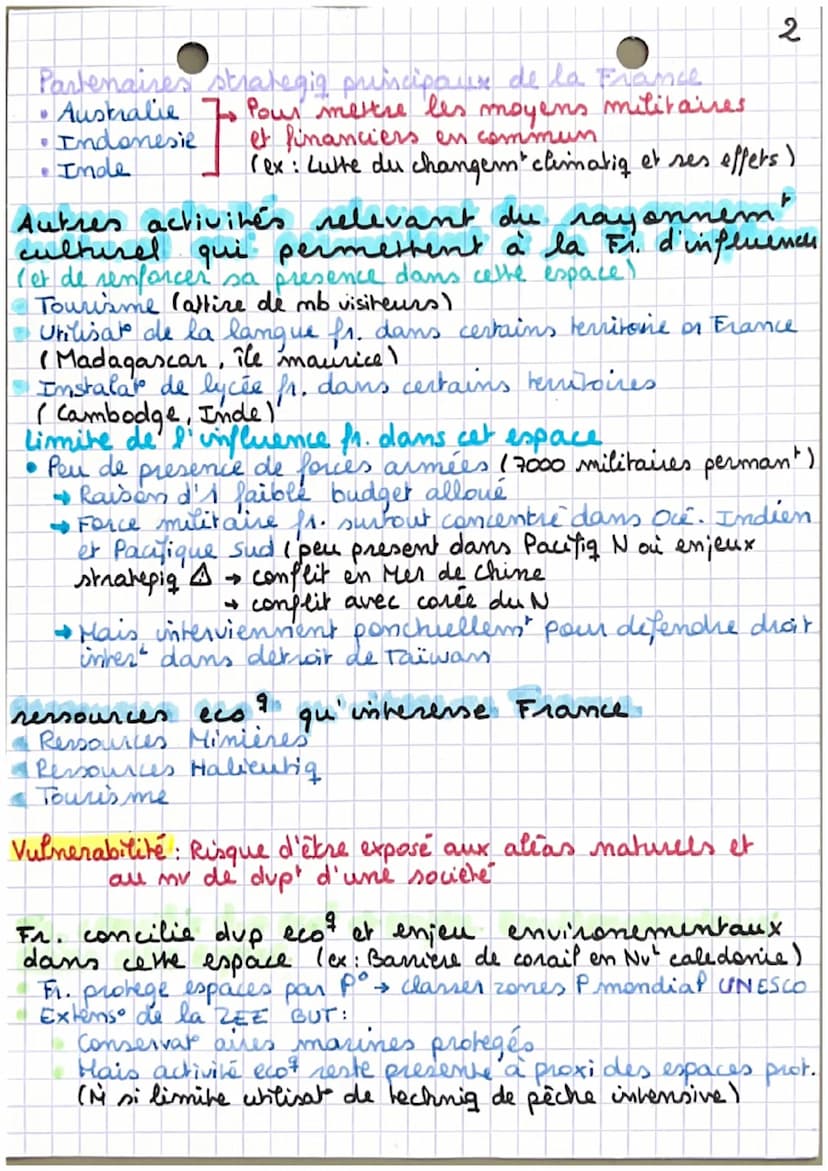 2
Partenaires strategiq principaux de la France
• Australie → Pour mettre les moyens militaires
• Indonesie et financiers en commun
• Inde (ex : Lutte du changem^t climatiq et ses effets)
Autres activités relevant du rayonnem^t
culturel qui permettent à la Fr. d'influence
(et de renforcer sa presence dans cette espace)
• Tourisme (attire de nb visiteurs)
• Utilisat° de la langue fr. dans certains territoire or France
(Madagascar, île maurice)
• Instalat° de lycée fr. dans certains territoires
(Cambodge, Inde)
Limite de l'influence fr. dans cet espace
• Peu de presence de forces armées (7000 militaires perman^t)
→ Raison d'1 faible budget alloué
→ Force militaire fr. surtout concentré dans Océ. Indien
et Pacifique Sud (peu present dans Pacifiq N où enjeux
strategiq ⚠ → conflit en Mer de Chine
→ conflit avec corée du N
→ Mais interviennent ponctuellem^t pour defendre droit
inter^t dans detroit de Taïwan
ressources eco^q qu'interesse France
• Ressources Minières
• Ressources Halieutiq
• Tourisme
Vulnerabilité : Risque d'être exposé aux aléas naturels et
au nv de dvp^t d'une société
Fr. concilie dvp eco^q et enjeu environementaux
dans cette espace (ex : Barrière de corail en Nv^l caledonie)
• Fr. protege espaces par P° → classer zones P mondial UNESCO
• Extens° de la ZEE BUT :
• Conservat° aires marines protegés
• Mais activité eco^q reste presente à proxi des espaces prot.
(M̂ si limite utilisat° de techniq de pêche intensive)